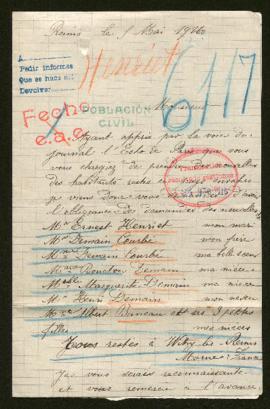 Reims le 1 Mai 1916
Henriet
6117
A
Pedir informes
Que se haga así
Devolver
Fecho
e.a.e.
POBLACIÓN
CIVIL
Monsieur
Ayant appris par la voie du
journal l'Echo de Paris que vous
vous chargiez de prendre des nouvelles
des habitants restés en pays envahis
je viens donc vous
l'obligeance de demander des nouvelles
Mr Ernest Henriet mon mari
Mr Demain Courbe mon frère
Demain Courbe ma belle sœur
Demain ma nièce
Marguerite Demain ma nièce
Mr Henri Demain mon neveu
Albert et ses 3 petites
filles mes nièces
Tous restés à Witry les Reims
Marne France
Je vous serais reconnaissante
et vous remercie à l'avance